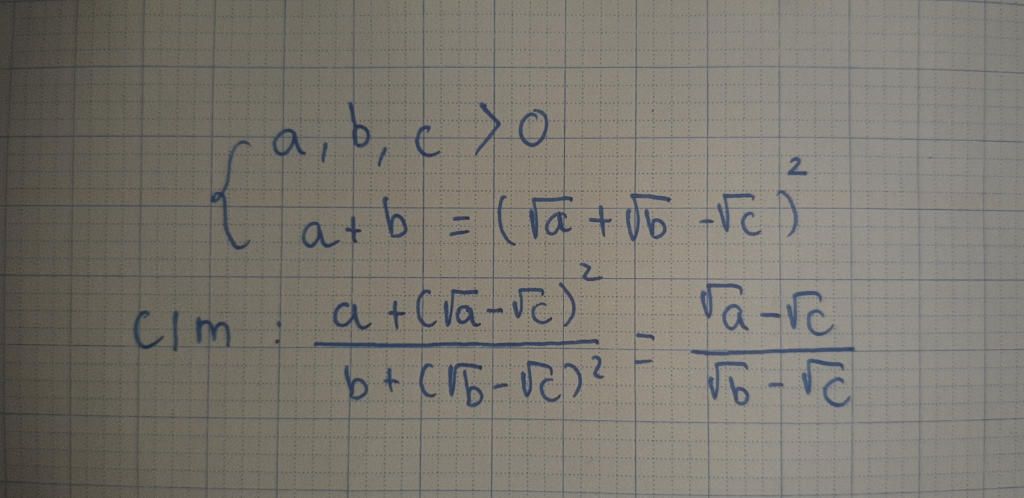 { a, b, c > 0
a + b = (√a + √b - √c)²
C/m : (a + (√a - √c)²) / (b + (√b - √c)²) = (√a - √c) / (√b - √c)